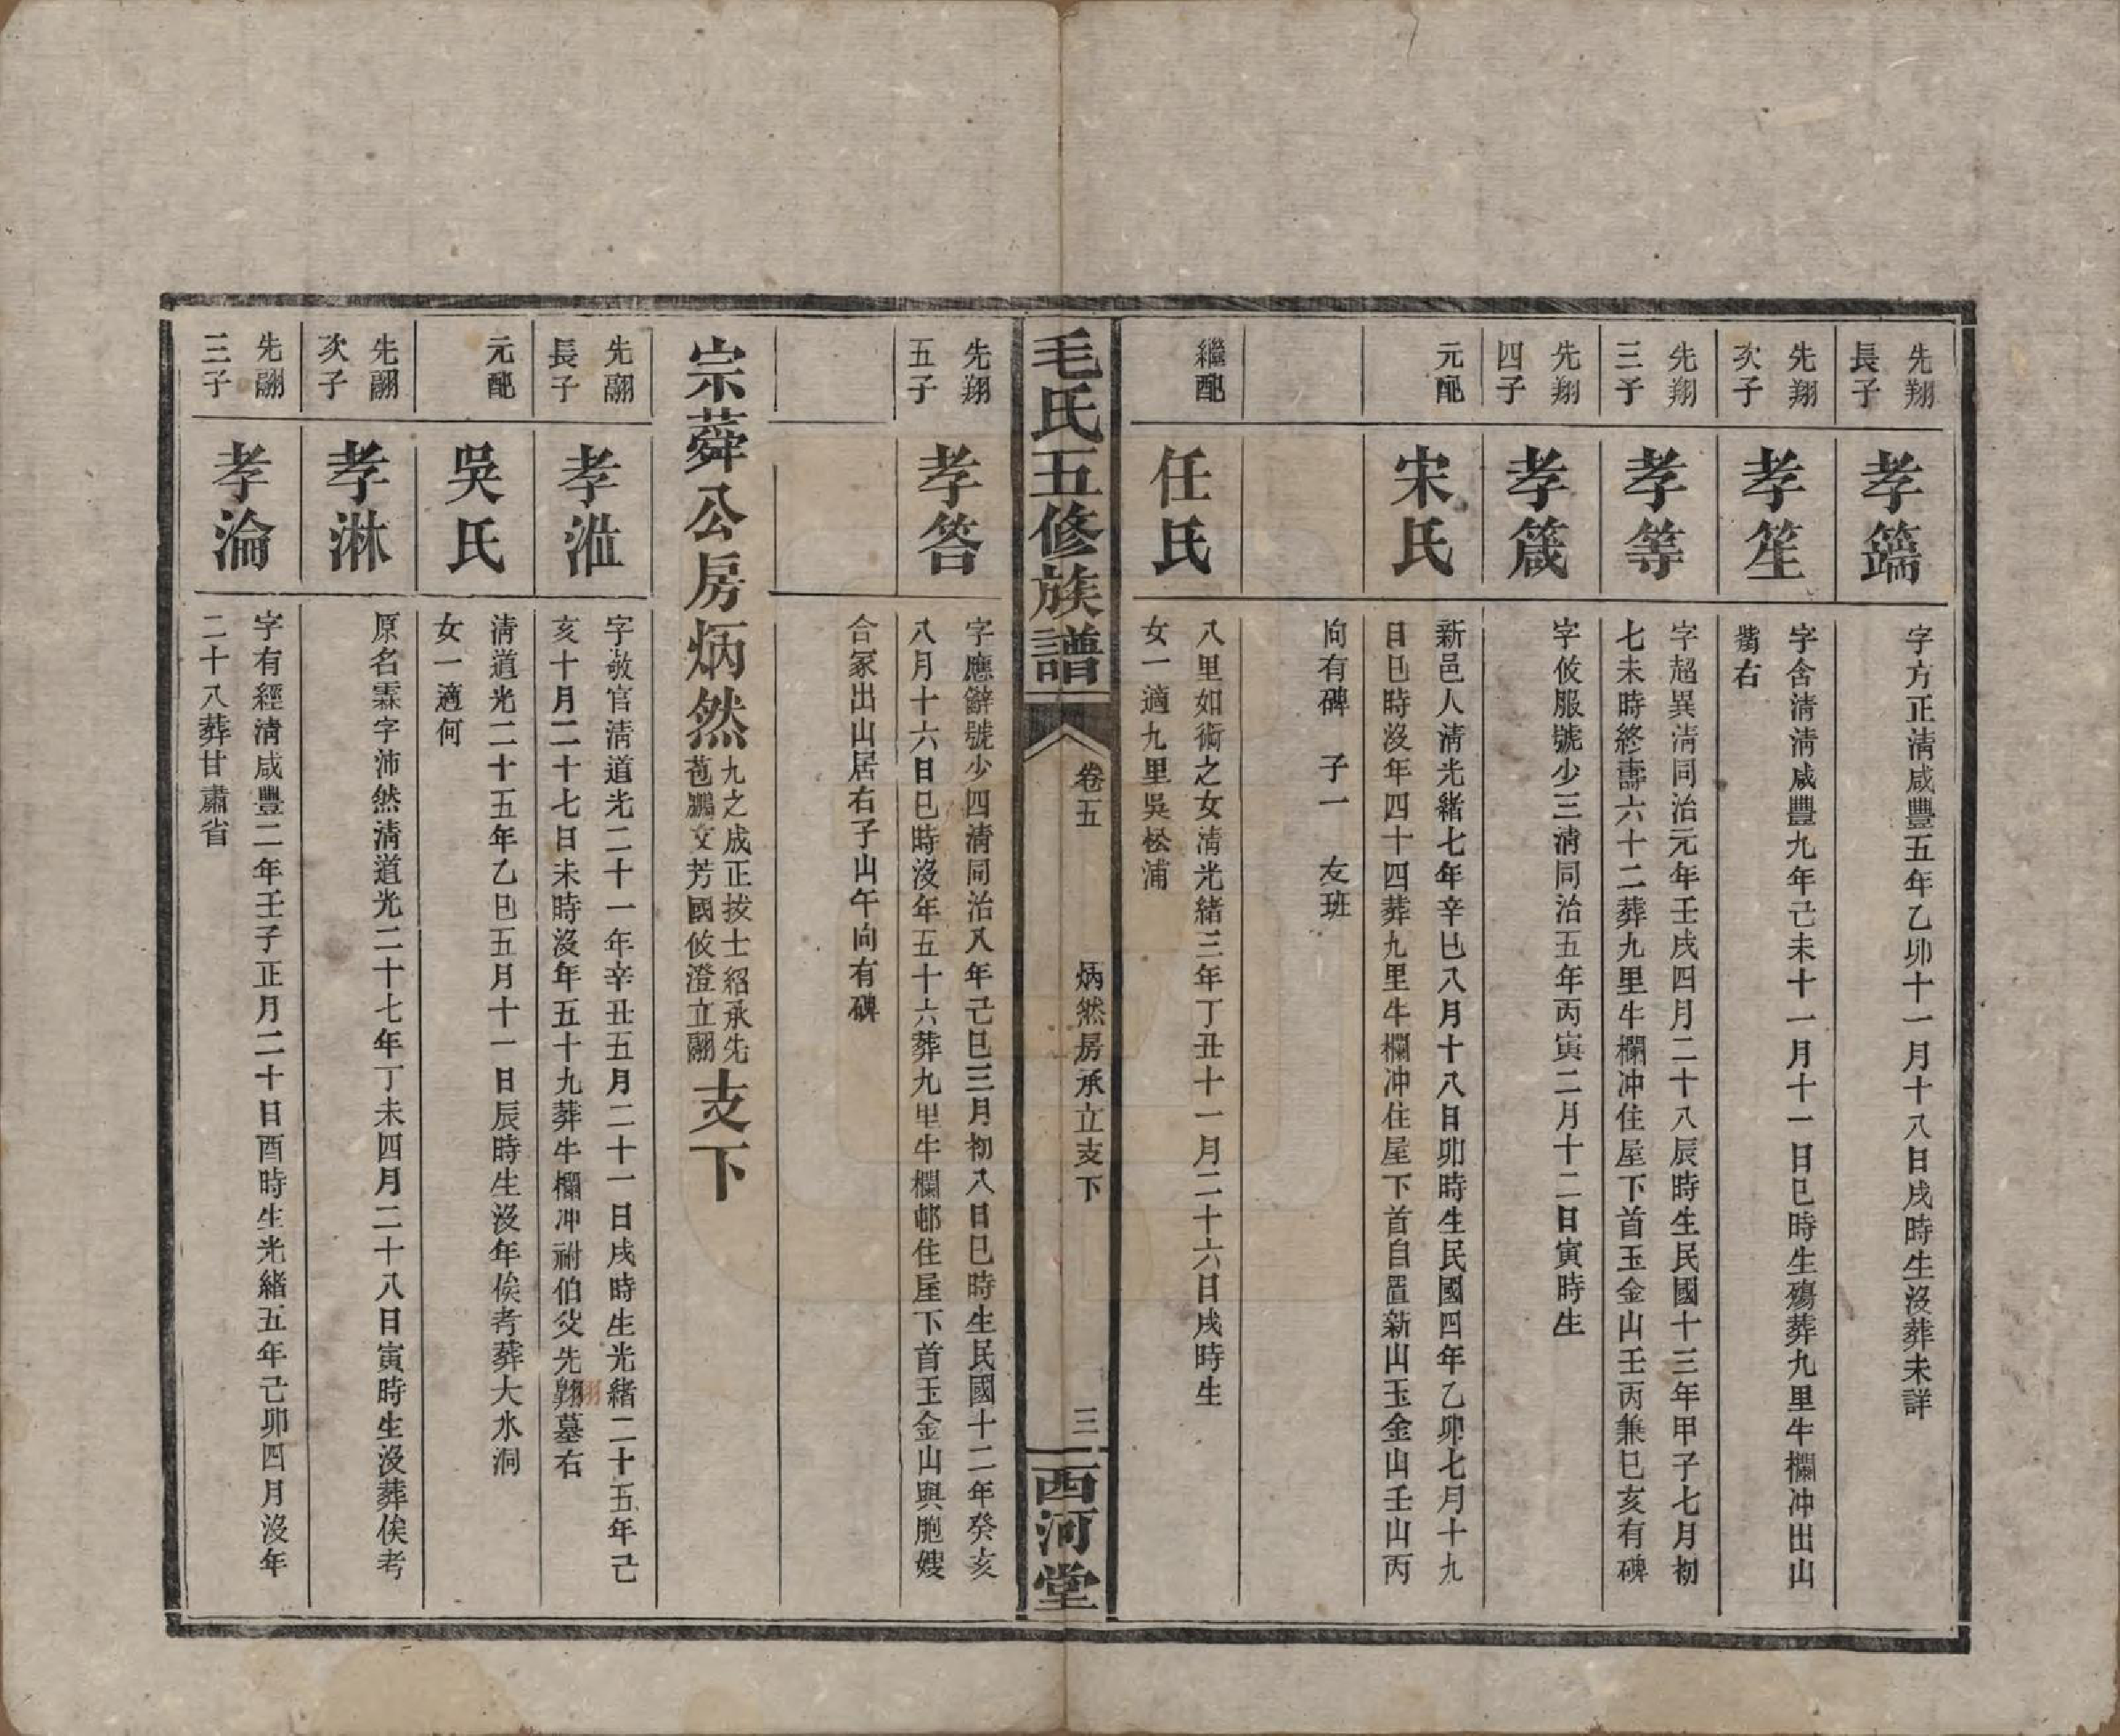 先翔
長子
孝籪
字方正清咸豐五年乙卯十一月十八日戌時生沒葬未詳
先翔
次子
孝笙
字含清清咸豐九年己未十一月十一日巳時生殤葬九里牛欄冲出山
嘴右
先翔
三子
孝等
字超異清同治元年壬戌四月二十八辰時生民國十三年甲子七月初
七未時終壽六十二葬九里牛欄冲住屋下首玉金山壬丙兼巳亥有碑
先翔
四子
孝箴
字攸服號少三清同治五年丙寅二月十二日寅時生
元配
宋氏
新邑人清光緒七年辛巳八月十八日卯時生民國四年乙卯七月十九
日巳時沒年四十四葬九里牛欄冲住屋下首自置新山玉金山壬山丙
向有碑　子一　友班
繼配
任氏
八里如術之女清光緒三年丁丑十一月二十六日戌時生
女一適九里吳松浦
毛氏五修族譜
卷五
炳然房承立支下
三
西河堂
先翔
五子
孝答
字應辭號少四清同治八年己巳三月初八日巳時生民國十二年癸亥
八月十六日巳時沒年五十六葬九里牛欄邨住屋下首玉金山與胞嫂
合冢出山居右子山午向有碑
宗蕣公房炳然
九之成正拔士紹承先
苞鵬文芳國攸澄立翮
支下
先翮
長子
孝泚
字敬官清道光二十一年辛丑五月二十一日戌時生光緒二十五年己
亥十月二十七日未時沒年五十九葬牛欄冲祔伯父先翱墓右
元配
吳氏
清道光二十五年乙巳五月十一日辰時生沒年俟考葬大水洞
女一適何
先翮
次子
孝淋
原名霖字沛然清道光二十七年丁未四月二十八日寅時生沒葬俟考
先翮
三子
孝淪
字有經清咸豐二年壬子正月二十日酉時生光緒五年己卯四月沒年
二十八葬甘肅省